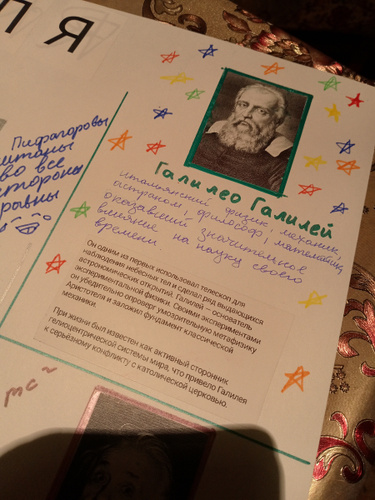 Я П
Пифагоровы
штаны
во все
стороны
равны
Галилео Галилей
итальянский физик, механик,
астроном, философ, математик,
оказавший значительное
влияние на науку своего
времени.
Он одним из первых использовал телескоп для
наблюдения небесных тел и сделал ряд выдающихся
астрономических открытий. Галилей – основатель
экспериментальной физики. Своими экспериментами
он убедительно опроверг умозрительную метафизику
Аристотеля и заложил фундамент классической
механики.
При жизни был известен как активный сторонник
гелиоцентрической системы мира, что привело Галилея
к серьёзному конфликту с католической церковью.
mc²